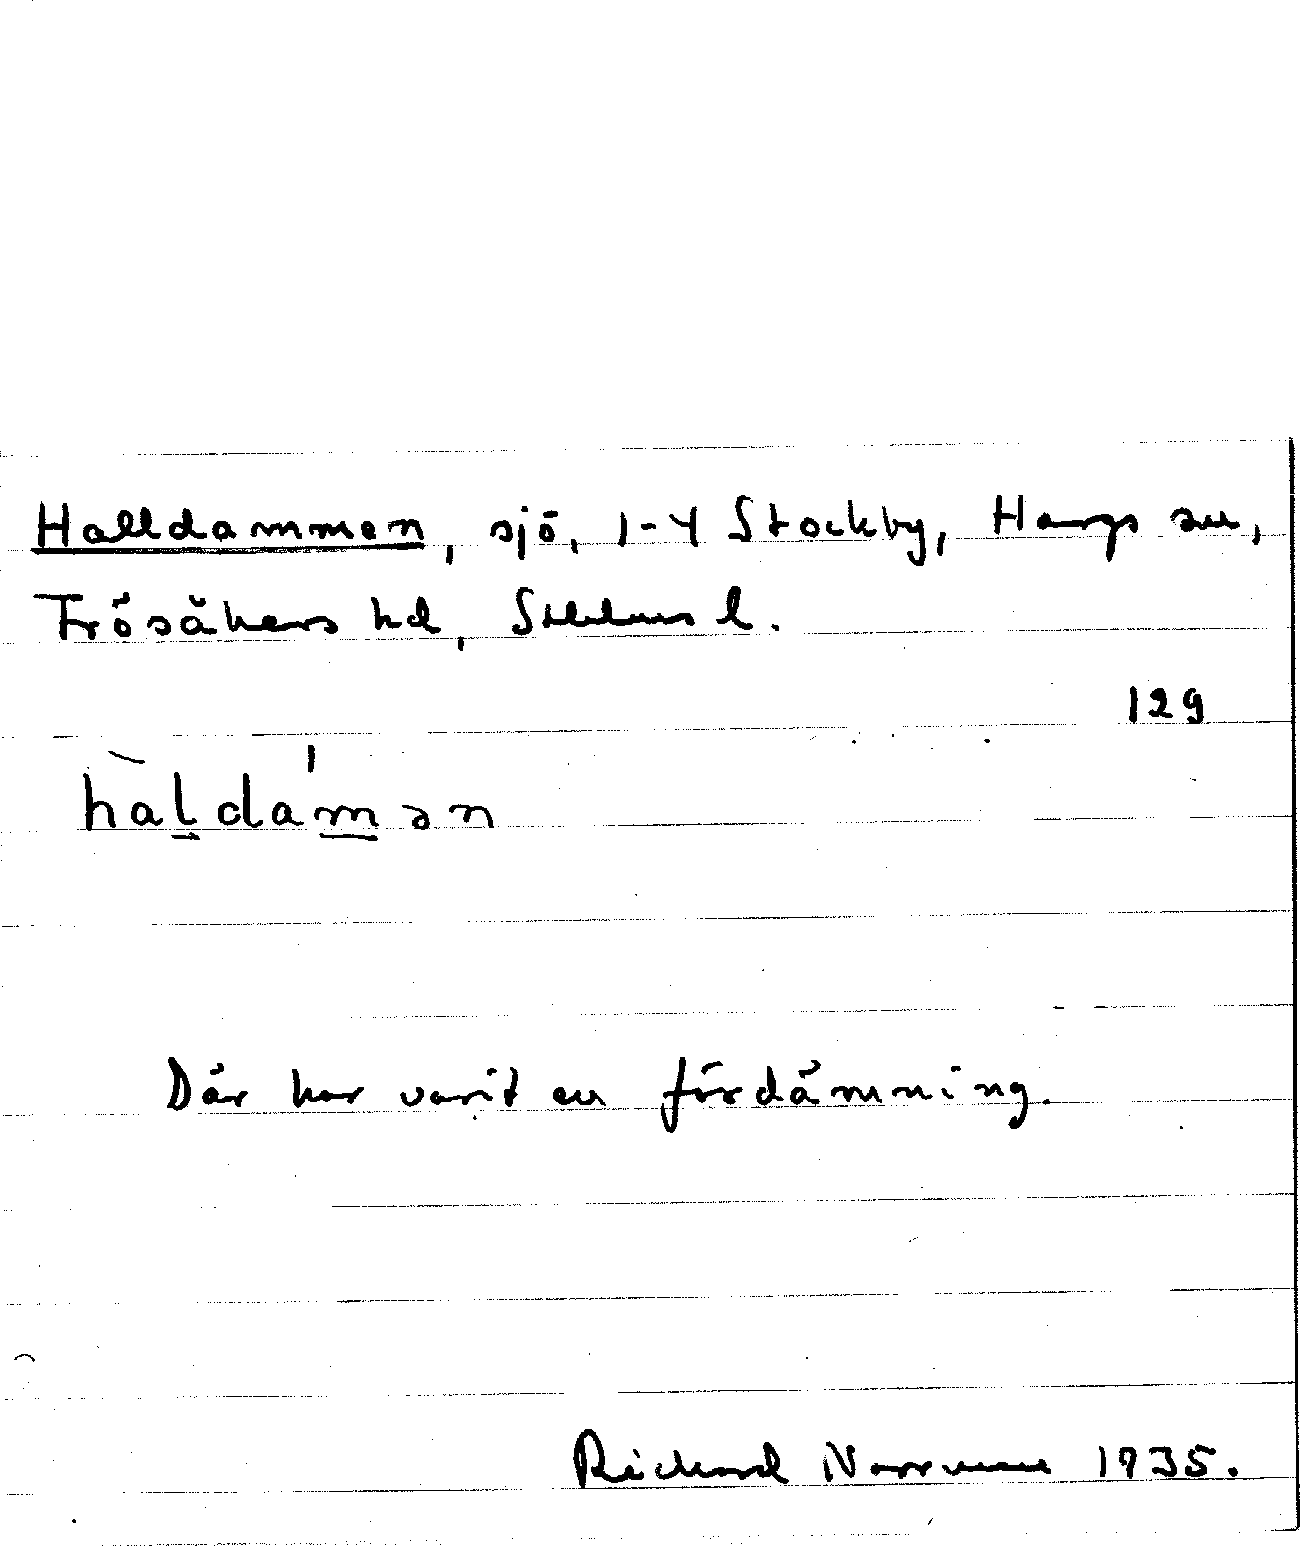 Halldammen, sjö, 1-4 Stockby, Hargs sn,
Frösåkers hd, Sthlms l.
129
hàl̠dám̠ən
Där har varit en fördämning.
Richard Norrman 1935.